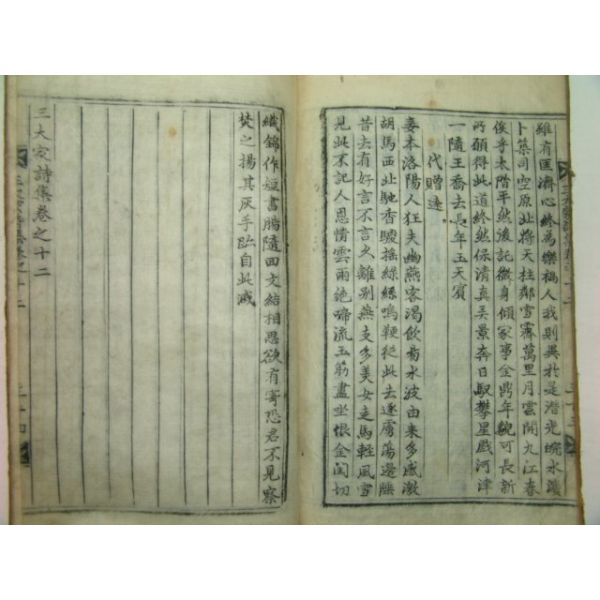 雖有匡濟心終爲樂禍人我則異於是潛光皖水濱
卜築司空原北將天柱鄰雪霽萬里月雲開九江春
俟乎太階平然後託微身傾家事金鼎年貌可長新
所願得此道終然保清真弄景奔日馭攀星戲河津
一隨王喬去長年玉天賓
代贈遠
妾本洛陽人狂夫幽燕客渴飲易水波由來多感激
胡馬西北馳香騣搖綠絲鳴鞭從此去逐虜蕩邊陲
昔去有好言不言久離別燕支多美女走馬輕風雪
見此不記人恩情雲雨絶啼流玉筯盡坐恨金閨切
織錦作短書腸隨回文結相思欲有寄恐君不見察
焚之揚其灰手跡自此滅
三大家詩集卷之十二